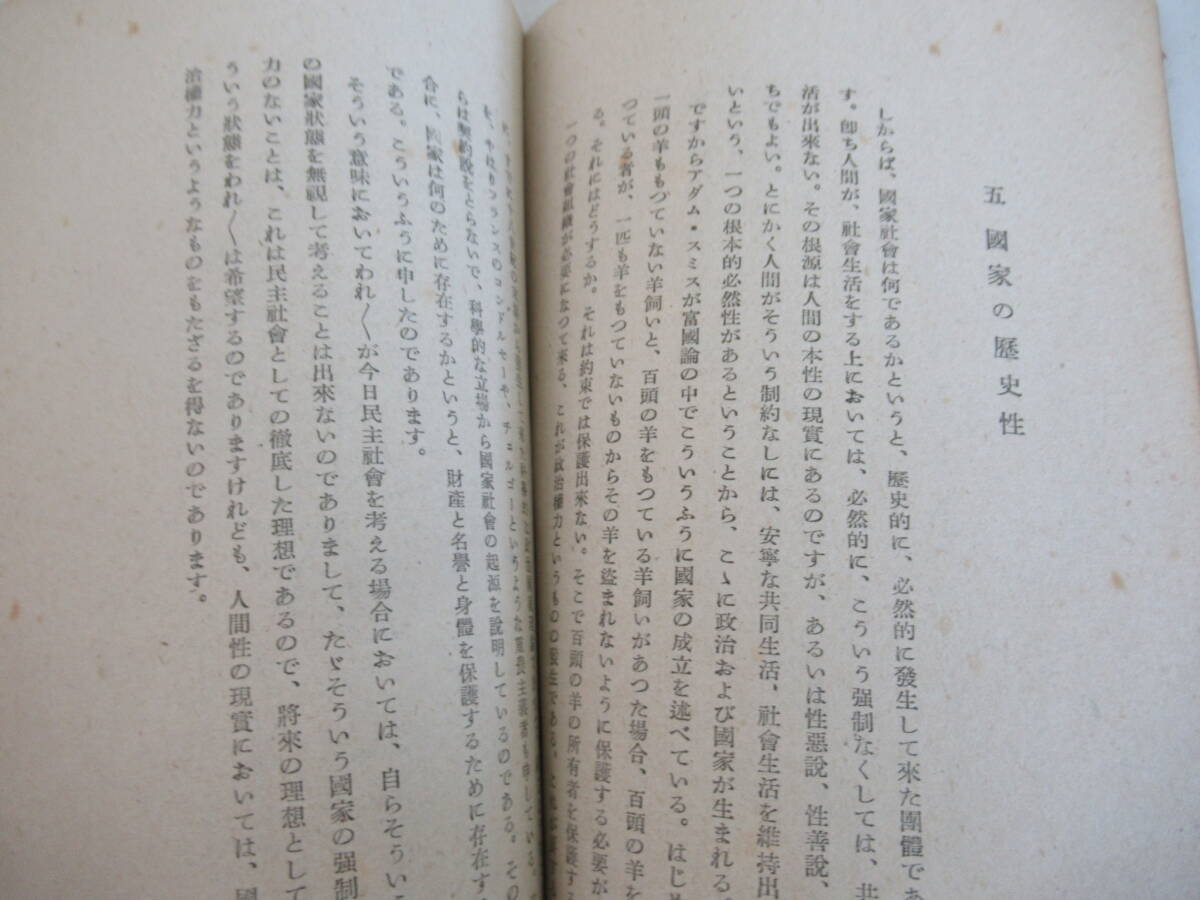 五 國家の歷史性
しからば、國家社會は何であるかというと、歷史的に、必然的に發生して來た團體であ
す。卽ち人間が、社會生活をする上においては、必然的に、こういう强制なくしては、共
活が出來ない。その根源は人間の本性の現實にあるのですが、あるいは性惡說、性善說、
ちでもよい。とにかく人間がそういう制約なしには、安寧な共同生活、社會生活を維持出
いという、一つの根本的必然性があるということから、こゝに政治および國家が生まれる。
ですからアダム・スミスが富國論の中でこういうふうに國家の成立を述べている。はじめ
一頭の羊ももつていない羊飼いと、百頭の羊をもつている羊飼いがあつた場合、百頭の羊を
つている者が、一匹も羊をもつていないものからその羊を盜まれないように保護する必要が
る。それにはどうするか。それは約束では保護出來ない。そこで百頭の羊の所有者を保護する
一つの社會組織が必要になつて來る、これが政治權力というものの發生である。
やはりフランスのコンドルセーや、チュルゴーというような重農主義者も申している。
らは契約說をとらないで、科學的な立場から國家社會の起源を說明しているのである。その
合に、國家は何のために存在するかというと、財產と名譽と身體を保護するために存在す
である。こういうふうに申したのであります。
そういう意味においてわれ〱が今日民主社會を考える場合においては、自らそういこ
の國家狀態を無視して考えることは出來ないのでありまして、たゞそういう國家の强制
力のないことは、これは民主社會としての徹底した理想であるので、將來の理想として
ういう狀態をわれ〱は希望するのでありますけれども、人間性の現實においては、國
治權力というようなものをもたざるを得ないのであります。